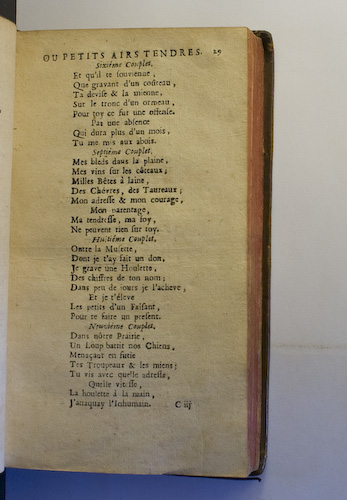 OU PETITS AIRS TENDRES. 29
Sixiéme Couplet.
Et qu'il te souvienne,
Que gravant d'un coûteau,
Ta devise & la mienne,
Sur le tronc d'un ormeau,
Pour toy ce fut une offense.
Par une absence
Qui dura plus d'un mois,
Tu me mis aux abois.
Septiéme Couplet.
Mes bleds dans la plaine,
Mes vins sur les côteaux;
Milles Bêtes à laine,
Des Chévres, des Taureaux;
Mon adresse & mon courage,
Mon parentage,
Ma tendresse, ma foy,
Ne peuvent rien sur toy.
Huitiéme Couplet.
Outre la Musette,
Dont je t'ay fait un don.
Je grave une Houlette,
Des chiffres de ton nom;
Dans peu de jours je l'acheve;
Et je t'éleve
Les petits d'un Faisant,
Pour te faire un present.
Neuviéme Couplet.
Dans nôtre Prairie,
Un Loup battit nos Chiens,
Menaçant en furie
Tes Troupeaux & les miens;
Tu vis avec quelle adresse,
Quelle vitesse,
La houlette à la main,
J'attaquay l'Inhumain. C iij